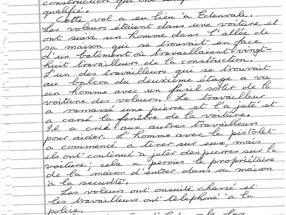 construction qui
qualifié.
Cette vol a eu lieu à Edenvale.
Les voleurs étaient dans une voiture et
ont suivi un homme dans l'allée de
sa maison qui se trouvait en face
d'un batiment où travaillaient vingt-
huit travailleurs de la construction.
L'un des travailleurs qui se trouvait
au balcon du deuxième étage a vu
un homme avec un fusil sortir de la
voiture des voleurs. Le travailleur
a ramassé une pierre et l'a jeté et
a cassé la fenêtre de la voiture.
Il a crié aux autres travailleurs
pour aider. L'homme avec le pistolet
a commencé a tirer sur eux, mais
ils ont continué à jeter des pierres sur la
voiture; cela a permis le propriétaire
de la maison d'entrer dans sa maison
à la securité.
Les voleurs ont ensuite chassé et
les travailleurs ont téléphoné à la
police.